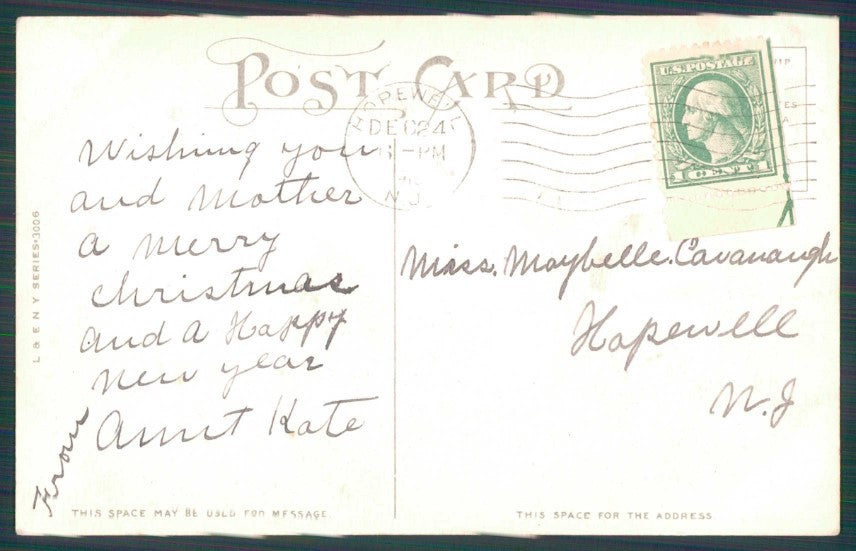 POST CARD
HOPEWELL
DEC 24
6 - PM
N.J.
U.S. POSTAGE
1 CENT 1
Wishing you
and Mother
a Merry
Christmas
and a Happy
New year
Aunt Kate
From
Miss. Maybelle. Cavanaugh
Hopewell
N. J
L & E N Y SERIES 3006
THIS SPACE MAY BE USED FOR MESSAGE.
THIS SPACE FOR THE ADDRESS